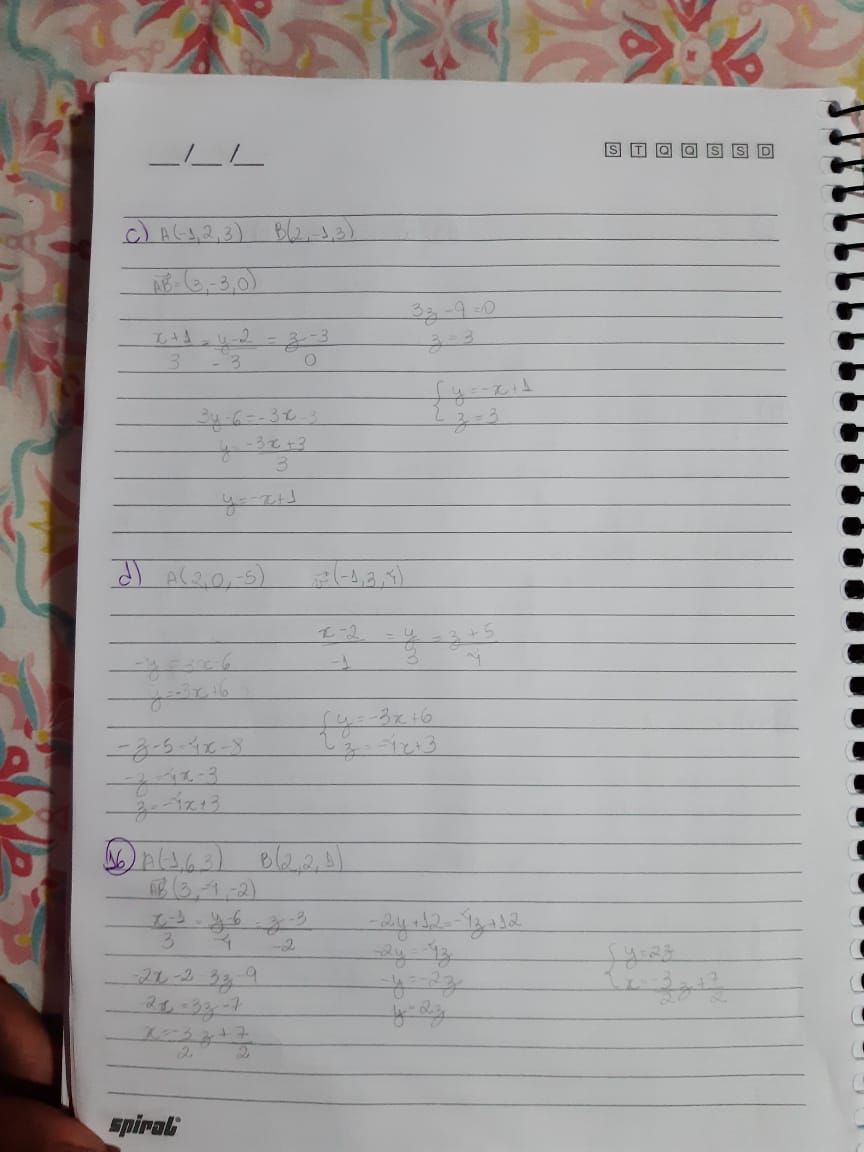 __/__/__ S T Q Q S S D
c) A(-1,2,3) B(2,-1,3)
AB=(3,-3,0)
3z-9=0
x+1/3 = y-2/-3 = z-3/0
z=3
{ y=-x+1
{ z=3
3y-6=-3x-3
y=-3x+3/3
y=-x+1
d) A(2,0,-5) v(-1,3,4)
x-2/-1 = y/3 = z+5/4
-y=3x-6
y=-3x+6
{ y=-3x+6
{ z=-4x+3
-z-5=4x-8
-z=4x-3
z=-4x+3
16 A(-1,6,3) B(2,2,1)
AB(3,-4,-2)
x-1/3 = y-6/-4 = z-3/-2
-2x-2=3z-9
-2x=3z-7
x=-3/2 z+7/2
-2y+12=-4z+12
-2y=-4z
-y=-2z
y=2z
{ y=2z
{ x=-3/2 z+7/2
spiral